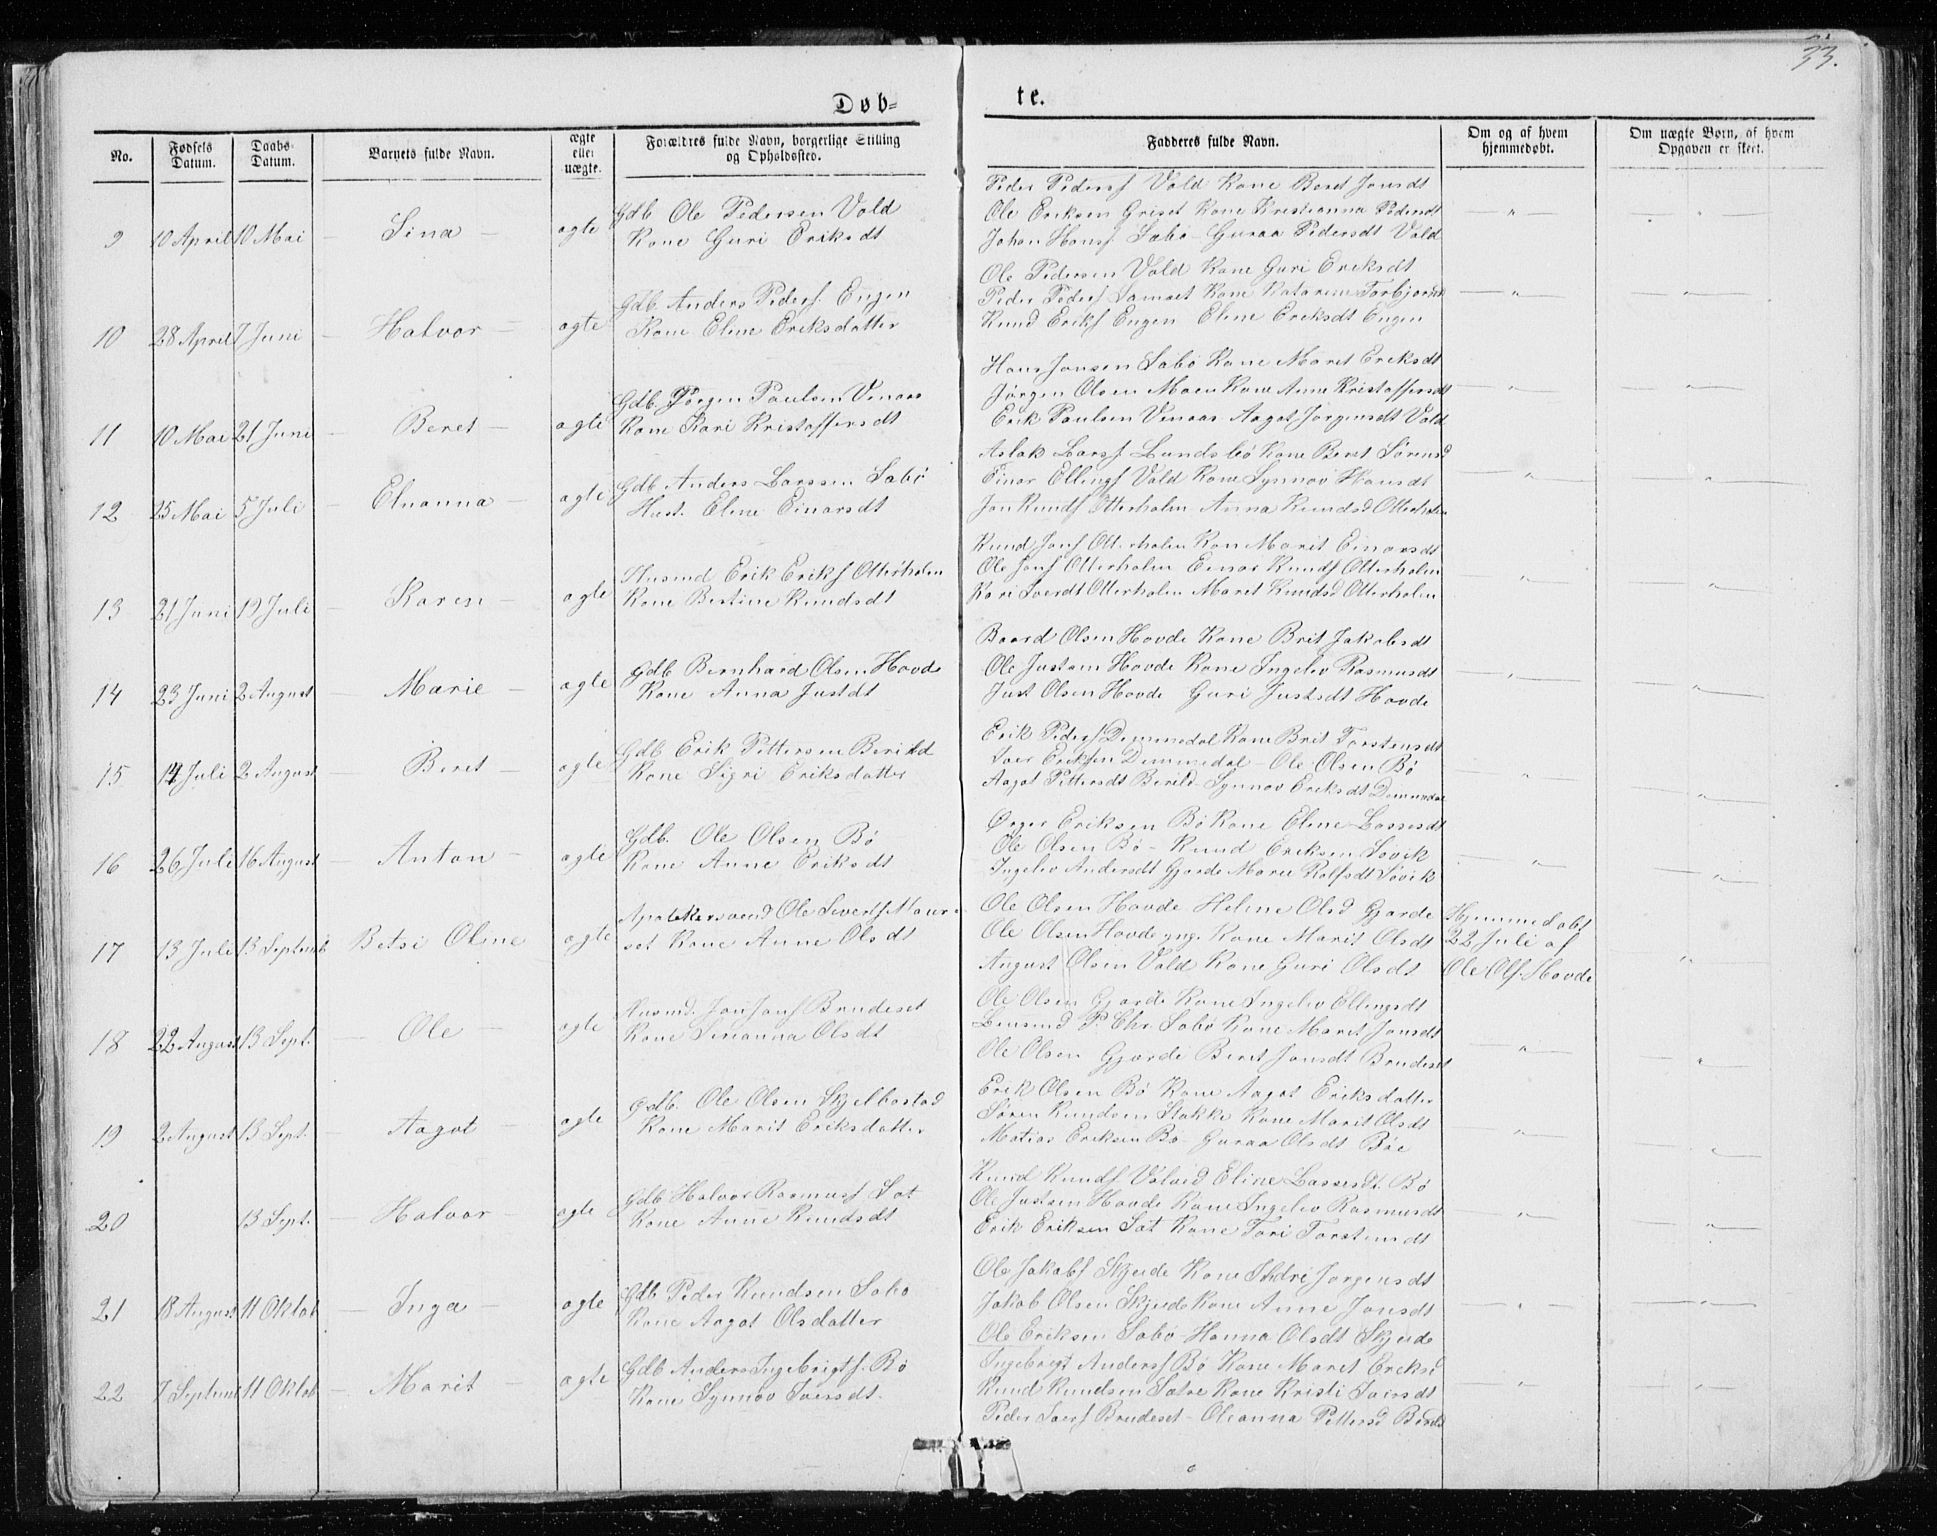 33.
Døb=
te.
No.
Fødsels Datum.
Daabs-Datum.
Barnets fulde Navn.
ægte eller uægte.
Forældres fulde Navn, borgerlige Stilling og Opholdssted.
Fadderes fulde Navn.
Om og af hvem hjemmedøbt.
Om uægte Børn, af hvem Opgaven er skeet.
9 10 April 10 Mai – Sina – ægte
Gdb Ole Pedersen Vold
Kone Guri Eriksdt
Peder Peders Vold Kone Beret Jonsdt
Ole Eriksen Griset Kone Kristianna Pedersdt
Johan Hans Sæbø Guraa Pedersdt Vold
10 28 April 7 Juni – Halvor – ægte
Gdb Anders Peders Engen
Kone Eline Eriksdatter
Ole Pedersen Vold Kone Guri Eriksdt
Peder Peders Samset Kone Katarina Torbjørnsd
Knud Eriks Engen Eline Eriksdt Engen
11 10 Mai 21 Juni – Beret – ægte
Gdb. Jørgen Paulsen Venaas
Kone Kari Kristoffersdt
Hans Jonsen Sæbø Kone Maret Eriksdt
Jørgen Olsen Moen Kone Anne Kristoffersdt
Erik Paulsen Venaas Aagot Jørgensdt Vold
12 25 Mai 5 Juli – Elnanna – ægte
Gdb Anders Larssen Sæbø
Hust. Eline Einarsdt
Aslak Lars Lundsbø Kone Beret Sørensd
Einar Ellings Vold Kone Synnøv Hansdt
Jon Knuds Otterholm Anna Knudsd Otterholm
13 21 Juni 19 Juli – Karen – ægte
Husmd Erik Eriks Otterholm
Kone Bestine Knudsdt
Knud Jons Otterholm Kon Marit Einarsdt
Ole Jons Otterholm Einar Knuds Otterholm
Kari Iversdt Otterholm Maret Knudsd Otterholm
14 23 Juni 2 August – Marie – ægte
Gdb Bernhard Olsen Hovde
Kone Anna Justdt
Baard Olsen Hovde Kone Brit Jakobsdt
Ole Justsen Hovde Kone Ingelev Rasmusdt
Just Olsen Hovde Guri Justsdt Hovde
15 14 Juli 2 August – Beret – ægte
Gdb Erik Pettersen Berild
Kone Sigri Eriksdatter
Erik Peders Demmedal Kone Brit Torstensdt
Iver Eriksen Demmedal – Ole Olsen Bø
Aagot Pettersdt Berild Synnøv Eriksdt Demmedal
16 26 Juli 16 August – Anton – ægte
Gdb. Ole Olsen Bø
Kone Anne Eriksdt
Eriksen Bø Kone Eline Lassesdt
Ole Olsen Bø – Knud Eriksen Søvik
Ingelev Andersdt Gjørde Maren Rolfsdt Søvik
17 13 Juli 13 Septemb Betsi Oline ægte
Apotekersvend Ole Siverts
set Kone Anne Olsdt
Ole Olsen Hovde Heline Olsd Gjærde
Ole Olsen Hovde yng. Kone Marit Olsdt
August Olsen Vold Kone Guri Olsdt
Hjemmedøbt
22 Juli af
Ole Ols Hovde
18 22 August 13 Sept. – Ole – ægte
Husmd. Jon Jons Brudeset
Kone Sinanna Olsdt
Ole Olsen Gjærde Kone Ingelev Ellingsdt
Lensmd P. Chr. Sæbø Kone Maret Jonsdt
Ole Olsen Gjærde Beret Jonsdt Brudeset
19 2 August 13 Sept. – Aagot – ægte
Gdb. Ole Olsen Skjelbostad
Kone Marit Eriksdatter
Erik Olsen Bø Kone Aagot Eriksdatter
Søren Knudsen Stokke Kone Marit Olsdt
Matias Eriksen Bø – Guraa Olsdt Bøe
20 13 Sept. – Halvor – ægte
Gdb Halvor Rasmuss Sæt
Kone Anne Knudsdt
Knud Knuds Eline Lassesdt. Bø
Ole Justsen Hovde Kone Ingelev Rasmusdt
Erik Eriksen Sæt Kone Tori Torstensdt
21 18 August 11 Oktob – Inga – ægte
Gdb Peder Knudsen Sæbø
Kone Aagot Olsdatter
Ole Jakobs Skjeide Kone Sildri Jørgensdt
Jakob Olsen Skjeide Kone Anne Jonsdt
Ole Eriksen Sæbø Hanna Olsdt Skjeide
22 7 Septemb 11 Oktob – Marit – ægte
Gdb Anders Ingebrigts. Bø
Kone Synnøv Iversdt.
Ingebrigt Anders Bø Kone Maret Eriksd
Knud Knudsen Sætre Kone Kristi Iversdt
Peder Ivers Brudeset – Oleanna Pettersd Berild